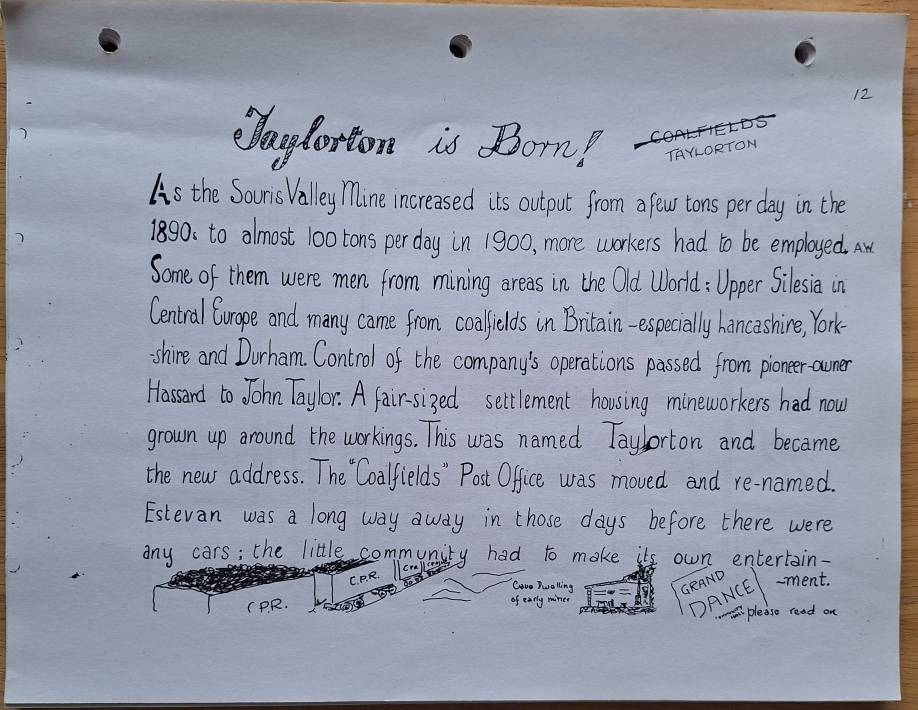 12
Taylorton is Born!
COALFIELDS
TAYLORTON
As the Souris Valley Mine increased its output from a few tons per day in the
1890s to almost 100 tons per day in 1900, more workers had to be employed. A.W.
Some of them were men from mining areas in the Old World: Upper Silesia in
Central Europe and many came from coalfields in Britain - especially Lancashire, York-
-shire and Durham. Control of the company's operations passed from pioneer-owner
Hassard to John Taylor. A fair-sized settlement housing mineworkers had now
grown up around the workings. This was named Taylorton and became
the new address. The "Coalfields" Post Office was moved and re-named.
Estevan was a long way away in those days before there were
any cars; the little community had to make its own entertain-
-ment.
C.P.R.
C.P.R.
CPR
Cave Dwelling
of early miner
GRAND
DANCE
please read on